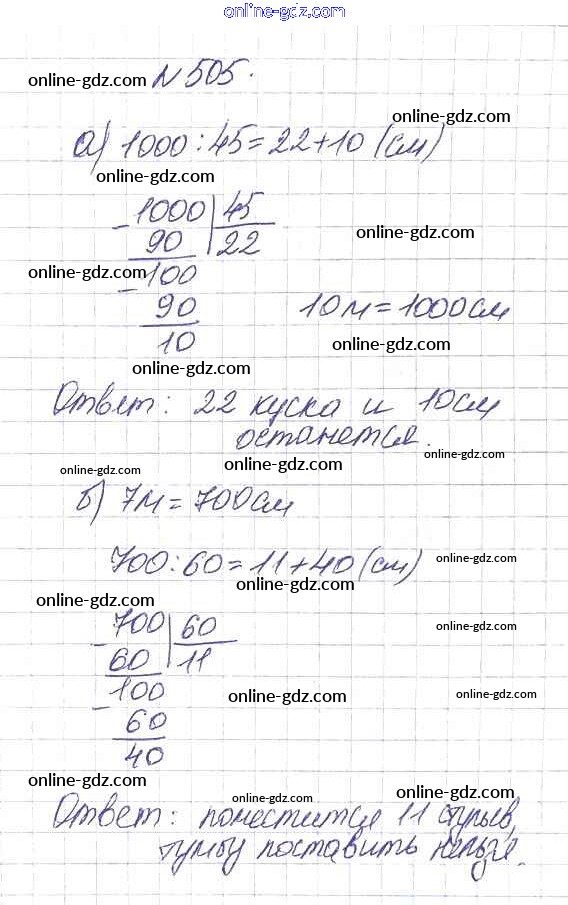 online-gdz.com
online-gdz.com №505.
online-gdz.com
а) 1000:45=22+10 (см)
online-gdz.com
1000 | 45
90 | 22
online-gdz.com
online-gdz.com
100
90 10м=1000см
10
online-gdz.com
online-gdz.com
Ответ: 22 куска и 10см
останется.
online-gdz.com
online-gdz.com
online-gdz.com
б) 7м=700см
700:60=11+40 (см)
online-gdz.com
online-gdz.com
online-gdz.com
700 | 60
online-gdz.com
60 | 11
100
online-gdz.com
online-gdz.com
60
40
online-gdz.com
online-gdz.com
online-gdz.com
Ответ: поместится 11 стульев,
тумбу поставить нельзя.